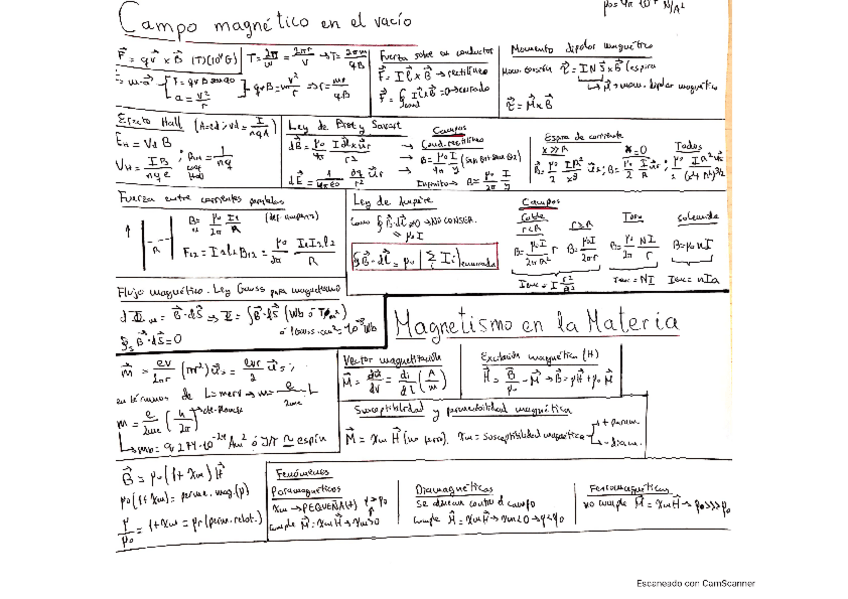 Campo magnético en el vacío
F = qv x B (T)(10⁴G) T = 2π/w = 2πr/v → T = 2πm/qB
F = qvB senα
a = v²/r
qvB = m v²/r → r = mv/qB
Fuerza sobre conductos
F = I l x B → rectilíneo
Momento dipolar magnético
τ = I N S x B (espira
→ μ = mom. dipolar magnético
τ = M x B
Efecto Hall (A = ed ; vd = I/nqA)
E_H = Vd B
V_H = IB/nqe ; R_H = 1/nq
Ley de Biot y Savart
dB = μ₀/4π I dl x ur/r²
dE = 1/4πε₀ dq/r² ur
Campos
Cond. rectilíneo
→ B = μ₀I/4π y (senθ1 + senθ2)
Infinito → B = μ₀/2π I/y
Espira de corriente
x >> R
x = 0
Todos
Fuerza entre corrientes paralelas
B = μ₀/2π I₁/R (der. amperio)
F₁₂ = I₂l₂B₁₂ = μ₀/2π I₁I₂l₂/R
Ley de Ampère
Como ∮B·dl ≠ 0 → NO CONSER.
= μ₀I
∮B·dl = μ₀|Σ Ii| encerrada
Campos
Cable
r<R
r≥R
B = μ₀I/2πR² r B = μ₀I/2πr
Ienc = I r²/R²
Toro
B = μ₀/2π NI/r
Ienc = NI
solenoide
B = μ₀nI
Ienc = nIa
Flujo magnético. Ley Gauss para magnetismo
dΦm = B·dS → Φ = ∫B·dS (Wb ó T/m²)
ó 1Gauss·cm² = 10⁻⁸Wb
∮s B·dS = 0
Magnetismo en la Materia
m = ev/2πr (πr²)us = evr/2 us ;
en términos de L = merv → m = e/2me · L
m = e/2me (h/2π)
→ cte. Planck
Vector magnetización
M = dm/dV = di/dl (A/m)
Excitación magnética (H)
H = B/μ₀ - M → B = μ₀H + μ₀M
Susceptibilidad y permeabilidad magnética
M = χm H (no ferro). χm = susceptibilidad magnética
+ param.
- diam.
B = μ₀(1+χm)H
μ₀(1+χm) = perme. mag. (μ)
μ/μ₀ = 1+χm = μr (perm. relat.)
Fenómenos
Paramagnéticos
χm → PEQUEÑA(+) μ > μ₀
cumple M = χm H → χm > 0
Diamagnéticos
se alinean contra el campo
cumple M = χm H → χm < 0 → μ < μ₀
Ferromagnéticos
no cumple M = χm H → μ >>> μ₀
Escaneado con CamScanner